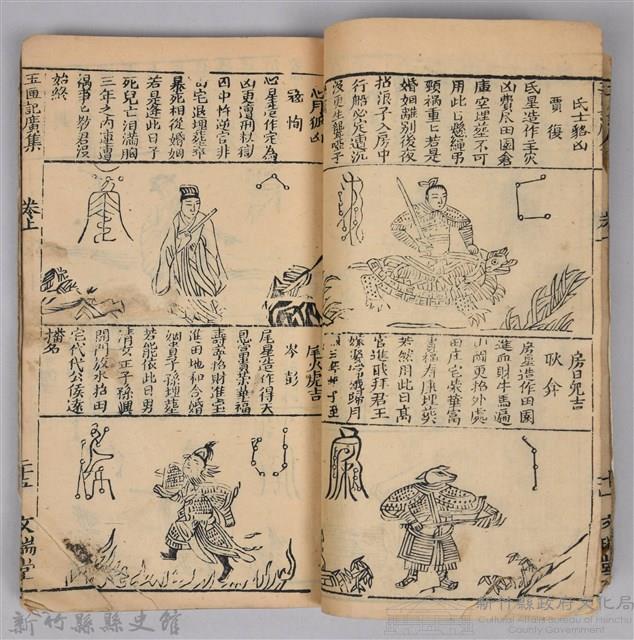 氐土貉凶
賈復
氐星造作主災
凶費尽田園倉
庫空埋葬不可
用此日懸繩弔
頸禍重亡若是
婚姻離別後夜
招浪子入房中
行船必定遭沉
沒更生聾啞子
房日兔吉
耿弇
房星造作田園
進血財牛馬遍
山崗更招外處
田庄宅榮華富
貴福寿康埋葬
若然用此日高
官進职拜君王
嫁娶常娥歸月
三年子至
心月狐凶
寇恂
心星造作定為
凶更遭刑獄
囚中忤逆官非
田宅退埋葬卒
暴死相從婚姻
若是逢此日子
死兒亡淚滿胸
三年之內連遭
禍事亡教君沒
始終
尾火虎吉
岑彭
尾星造作得天
恩富貴榮華福
壽寧招財進宝
進田地和合婚
姻貴子孫埋葬
若能依此日男
清女正子孫興
開門放水招田
宅代代公侯遠
播名
玉匣記廣集
卷上
文瑞堂
新竹縣縣史館
新竹縣政府文化局
Cultural Affairs Bureau of Hsinchu
County Government